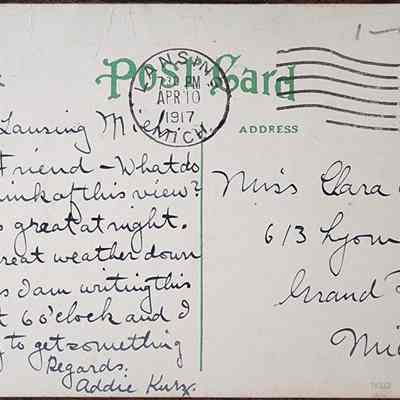 Post Card
LANSING
PM
APR 10
1917
MICH.
ADDRESS
1
Lansing Mich
Friend - What do
ink of this view?
s great at night.
reat weather down
s I am writing this
t 6 o'clock and I
g to get something
Regards.
Addie Kurz.
Miss Clara
613 Lyon
Grand
Mi